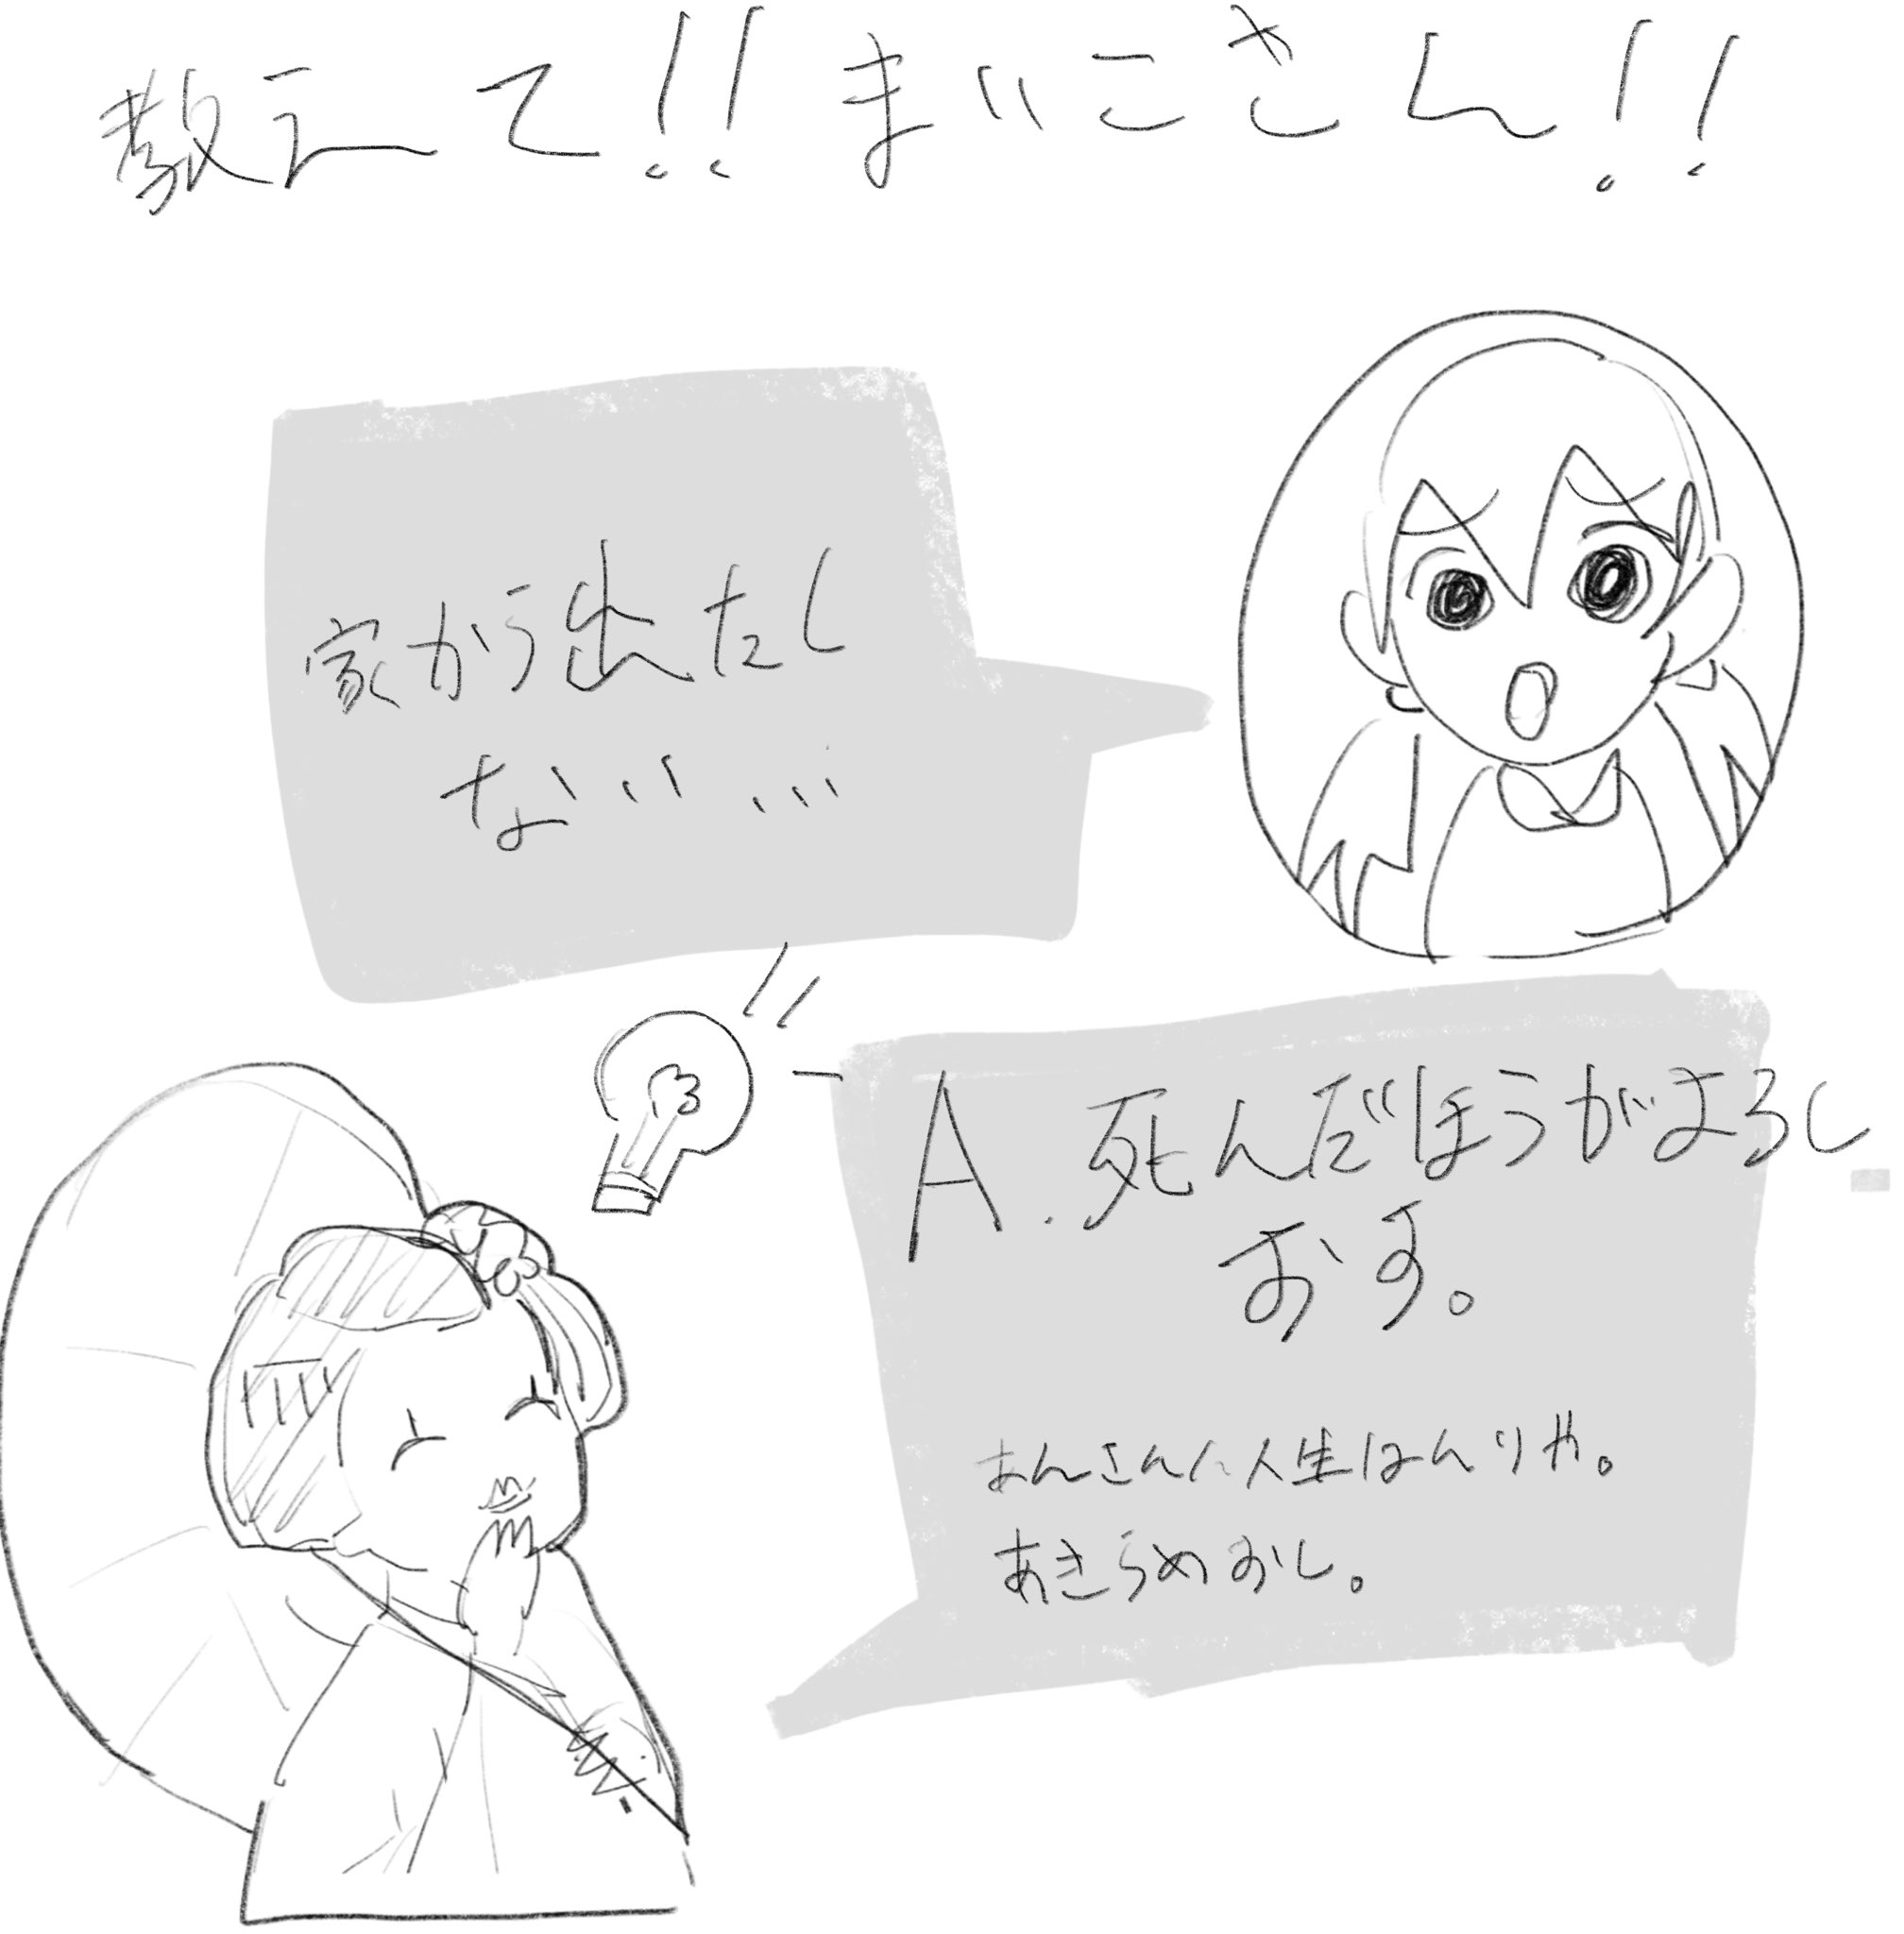 教えて!!まいこさん!!
家から出たく
ない…
A.死んだほうがよろし
おす。
あんさんん人生はんりや。
あきらめおし。